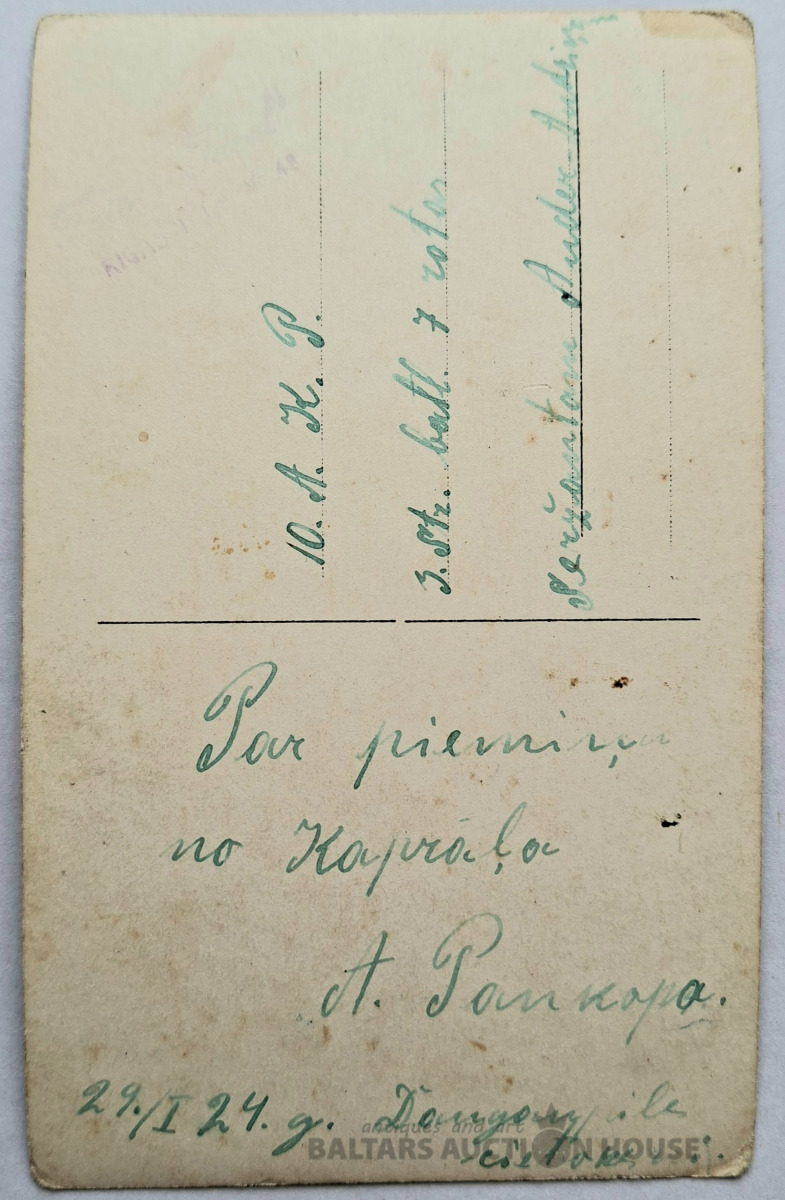 10. A. K. P.
3. Str. batl. 7 rotas
Seržantam Ander
Par piemiņu
no Kaprāļa
A. Pankopa.
29./I 24. g. Daugavpile
cietoksnī.
antiques and art
BALTARS AUCTION HOUSE